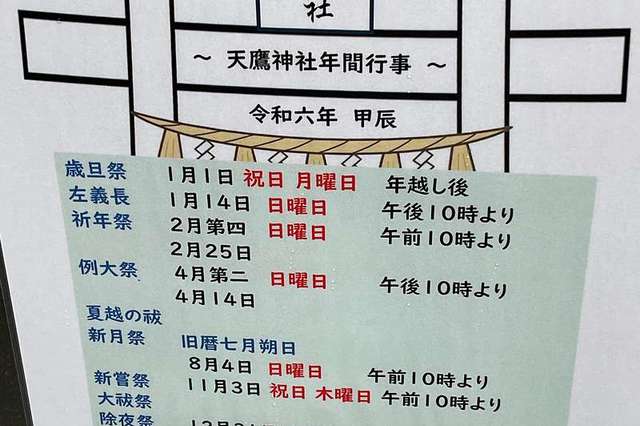 社
～ 天鷹神社年間行事 ～
令和六年 甲辰
歳旦祭 1月1日 祝日 月曜日 年越し後
左義長 1月14日 日曜日 午後10時より
祈年祭 2月第四 日曜日 午前10時より
2月25日
例大祭 4月第二 日曜日 午後10時より
4月14日
夏越の祓
新月祭 旧暦七月朔日
8月4日 日曜日 午前10時より
新嘗祭 11月3日 祝日 木曜日 午前10時より
大祓祭
除夜祭